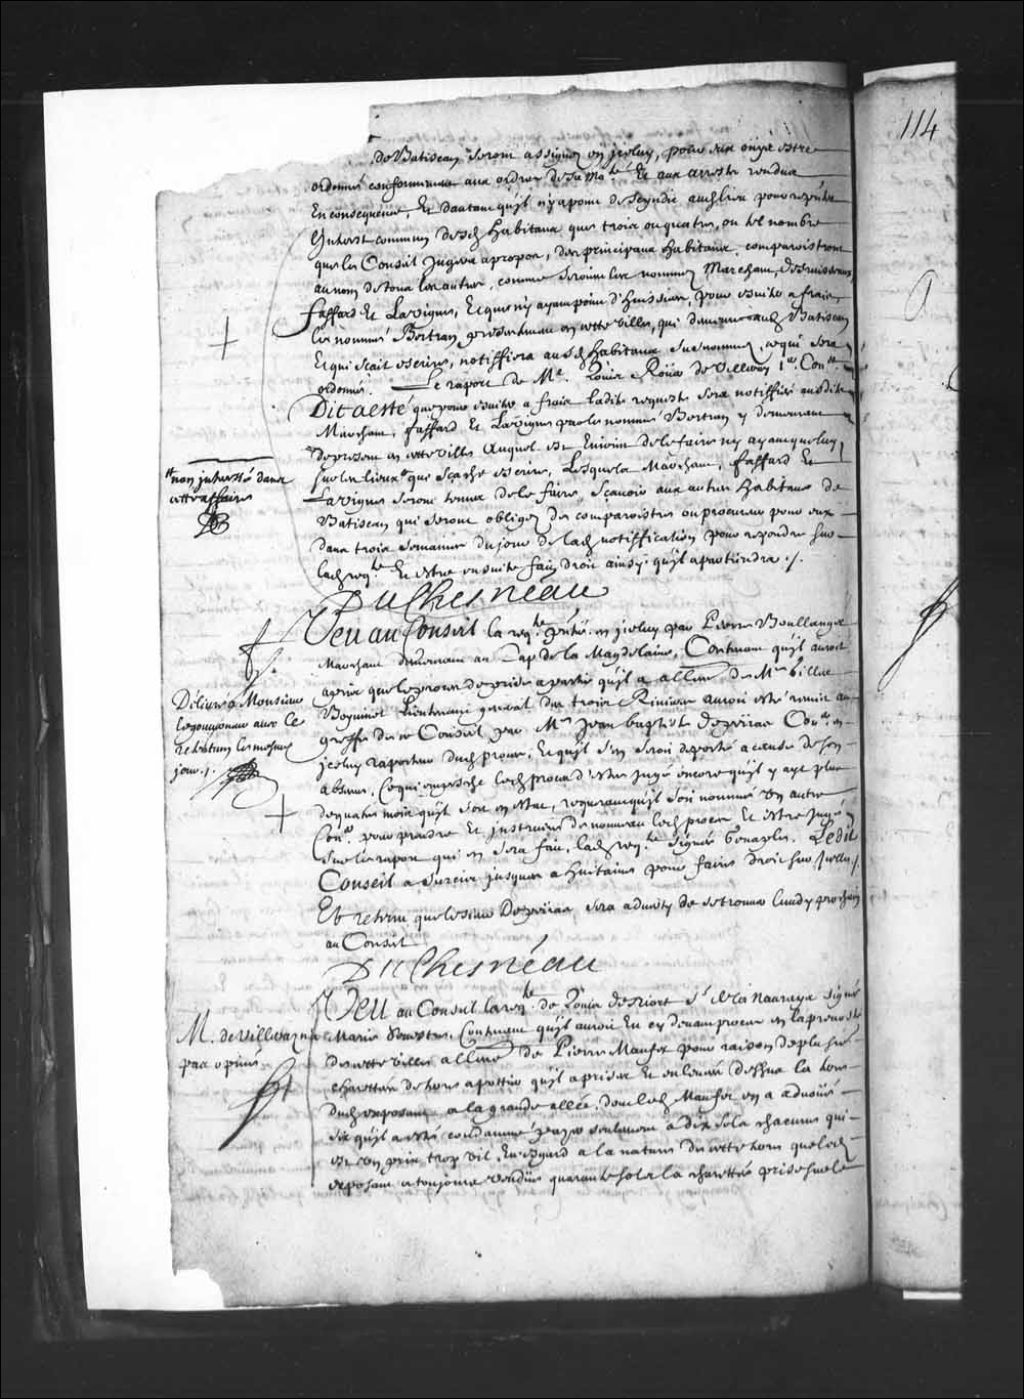 114
de Batiscan seront assignez en jceluy, pour eux ouys estre
ordonné conformement aux ordres de sa Ma.té Et aux arrests rendus
En consequence, Et d'autant qu'jl n'y a point de scyndic aud. lieu pour
Jnterest commun desd. habitans que trois ou quatre, ou tel nombre
que le Conseil Jugera a propos, des principaux habitans comparoistront
au nom de tous les autres, comme seroient les nommez Marchant,
faffard Et Lavigne, Et que n'y ayant point d'huissier, pour éviter a frais
le nommé Bertran presentement en cette ville, qui demeure aud. Batiscan
Et qui sçait escrire, notiffiera ausd. habitans susnommez, ce qui sera
ordonné. Le raport de M.e Louis Roüer de Villeray 1.er Con.er
Dit a esté que pour éviter a frais ladite requeste sera notiffiée ausdits
Marchant, faffard Et Lavigne par le nommé Bertran y demeurant
de present en cette ville Auquel est Enjoint de le faire n'y ayant que luy
sur les lieux # qui scache escrire, Lesquels Marchant, faffard Et
Lavigne seront tenus de le faire sçavoir aux autres habitans de
Batiscan qui seront obligez de comparoistre ou procureur pour eux
dans trois semaines du jour de lad. notiffication pour repondre sur
lad. req.te Et estre ensuite fait droit ainsy qu'jl apartiendra ./.
# non jnteressé dans
cette affaire
DuChesneau
Veu au Conseil la req.te pnt.ée en jceluy par Pierre Boullanger
Marchant demeurant au Cap de la Magdelaine, Contenant qu'jl auroit
apris que le proces de prise a partie qu'jl a allencontre de M.e Gilles
Boyvinet Lieutenant general des trois Rivieres auroit esté remis au
greffe de ce Conseil par M.e Jean baptiste Depeiras Con.er en
jceluy raporteur dud. proces, Et qu'jl s'en seroit deporté a cause de son
absence, Ce qui empesche led. proces d'estre jugé encore qu'jl y ayt plus
de quatre mois qu'jl soit en estat, requerant qu'jl soit nommé Un autre
Con.er pour prendre Et jnstruire de nouveau led. proces Et estre jugé
sur le raport qui en sera fait, lad. req.te signée Ledit
Conseil a surcis jusques a huitaine pour faire droit sur jcelle ./.
Et retenu que le sieur Depeiras sera adverty de se trouver Lundy prochain
au Conseil
Délivré a Monsieur
le gouverneur avec le
retentum le mesme
jour ./.
DuChesneau
Veu au Conseil la req.te de Loüis S.r signée
Marie Contenant qu'jl auroit Eu cy devant proces en la prevosté
de cette ville allencontre de Pierre Maufay pour raison de plusieurs
charettées de terre a pottier qu'jl a prise Et enlevée dessus la terre
dud. exposant a la grande allée, dont led. Maufay en a advoüé
six qu'jl a esté condamné payer seulement a dix sols chacune qui
est Un prix trop vil, Eu esgard a la nature de cette terre que led.
exposant a toujours vendüe quarante sols la charettée prise sur le
M. de Villeray n'a
pas opiné